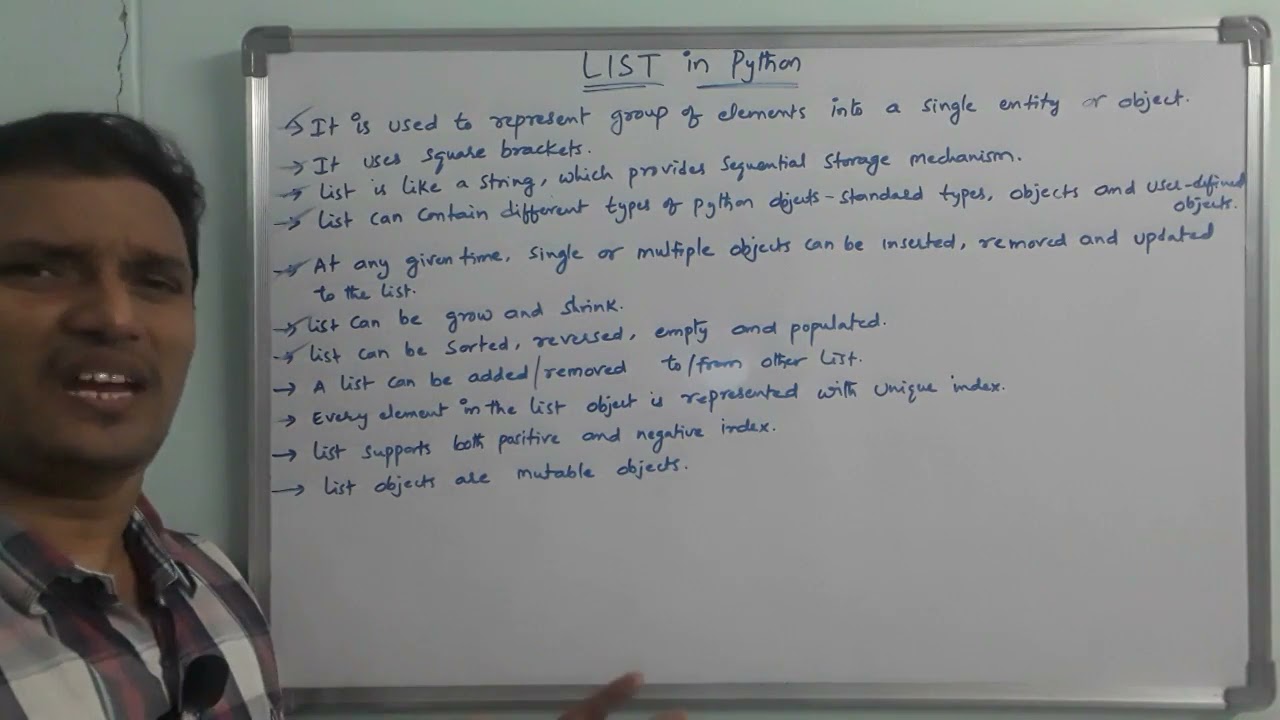 LIST in Python
→ It is used to represent group of elements into a single entity or object.
→ It uses square brackets.
→ List is like a string, which provides sequential storage mechanism.
→ List can contain different types of python objects - standard types, objects and user-defined
objects.
→ At any given time, single or multiple objects can be inserted, removed and updated
to the list.
→ list can be grow and shrink.
→ list can be sorted, reversed, empty and populated.
→ A list can be added/removed to/from other list.
→ Every element in the list object is represented with unique index.
→ list supports both positive and negative index.
→ list objects are mutable objects.